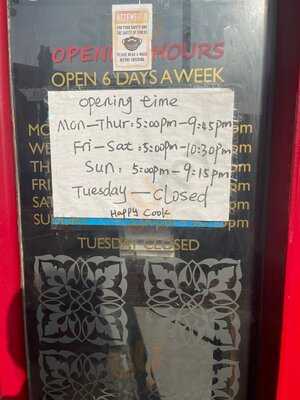 ATTENTION
FOR YOUR SAFETY AND
THE SAFETY OF OTHERS
PLEASE WEAR A MASK
BEFORE ENTERING
OPENING HOURS
OPEN 6 DAYS A WEEK
opening time
Mon-Thur: 5:00pm-9:45pm
Fri-Sat: 5:00pm-10:30pm
Sun: 5:00pm-9:15pm
Tuesday — Closed
Happy Cook
MO
WE
TH
FRI
SAT
SU
TUESDAY CLOSED